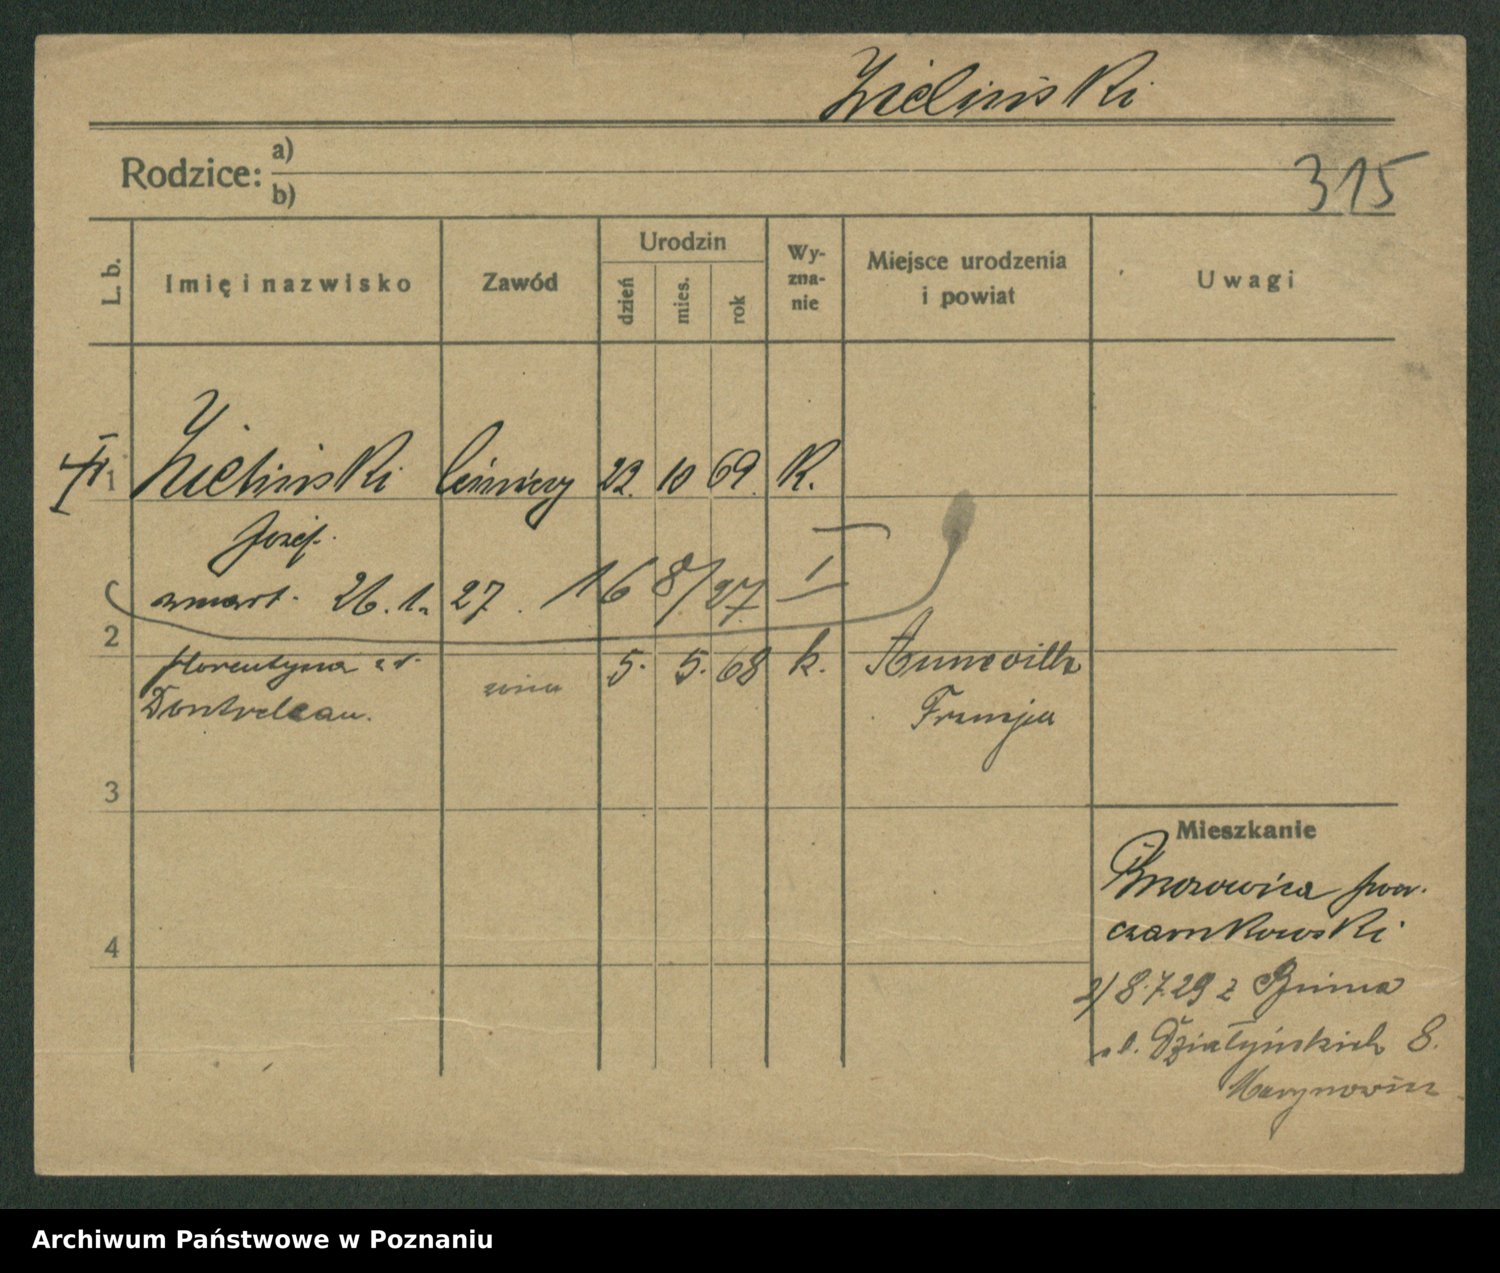 Zieliński
Rodzice: a)
b)
315
L. b.
Imię i nazwisko
Zawód
Urodzin
dzień
mies.
rok
Wy-
zna-
nie
Miejsce urodzenia
i powiat
Uwagi
1 Zieliński leśniczy 22. 10 69. K.
Józef.
zmart. 26.1. 27. 16 8/27 I
2
Florentyna 5. 5. 68 k.
żona
Francja
3
Mieszkanie
pow.
czarnkowski
4
2) 8.7.29 z Bnina
ul. Działyńskich 8.
Archiwum Państwowe w Poznaniu